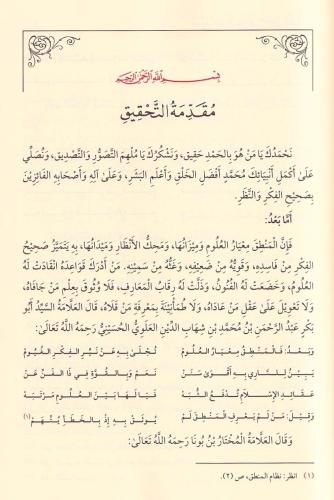 بِسْمِ اللَّهِ الرَّحْمَنِ الرَّحِيمِ
مُقَدِّمَةُ التَّحْقِيقِ
نَحْمَدُكَ يَا مَنْ هُوَ بِالحَمْدِ حَقِيق، وَنَشْكُرُكَ يَا مُلْهِمَ التَّصَوُّرِ وَالتَّصْدِيق، وَنُصَلِّي
عَلَىٰ أَكْمَلِ أَنْبِيَائِكَ مُحَمَّدٍ أَفْضَلِ الخَلْقِ وَأَعْلَمِ البَشَر، وَعَلَىٰ آلِهِ وَأَصْحَابِهِ الفَائِزِينَ
بِصَحِيحِ الفِكْرِ وَالنَّظَر.
أَمَّا بَعْدُ:
فَإِنَّ المَنْطِقَ مِعْيَارُ العُلُومِ وَمِيْزَانُهَا، وَمَحِكُّ الأَنْظَارِ وَمَيْدَانُهَا، بِهِ يَتَمَيَّزُ صَحِيْحُ
الفِكْرِ مِنْ فَاسِدِه، وَقَوِيُّهُ مِنْ ضَعِيْفِه، وَغَثُّهُ مِنْ سَمِيْنِه. مَنْ أَدْرَكَ قَوَاعِدَهُ انْقَادَتْ لَهُ
العُلُوم، وَخَضَعَتْ لَهُ الفُنُون، وَذَلَّتْ لَهُ رِقَابُ المَعَارِف، فَلَا وُثُوقَ بِعِلْمِ مَنْ جَافَاهُ،
وَلَا تَعْوِيلَ عَلَىٰ عَقْلِ مَنْ عَادَاهُ، وَلَا طُمَأْنِيْنَةَ بِمَعْرِفَةِ مَنْ قَلَاهُ، قَالَ العَلَّامَةُ السَّيِّدُ أَبُو
بَكْرِ عَبْدُ الرَّحْمَنِ بْنُ مُحَمَّدِ بْنِ شِهَابِ الدِّيْنِ العَلَوِيُّ الحُسَيْنِيُّ رَحِمَهُ اللَّهُ تَعَالَىٰ:
وَبَعْـدُ: فَالْـمَنْطِـقُ مِعْيَارُ العُلُومْ تُجْلَـىٰ بِـهِ عَنْ نَيِّـرِ الفِكْـرِ الغُيُومْ
يَبِيْـنُ لِلسَّـارِي بِـهِ أَقْـوَىٰ سَنَنْ نَعَـمْ وَبِالْـقُـوَّةِ فِـي ذَا الفَـنِّ عَنْ
عَقَائِـدِ الإِسْـلَامِ تُـدْفَعُ الشُّبَهْ فَيَـا لَـهَـا بَيْـنَ العُلُـومِ مَرْتَبَهْ
وَقِيْـلَ: مَـنْ لَمْ يَعْـرِفِ المَنْطِقَ لَمْ يُوثَـقْ بِـهِ إِذْ بِالخَطَـأْ يُتَّـهَمْ(١)
وَقَالَ العَلَّامَةُ المُخْتَارُ بْنُ بُونَا رَحِمَهُ اللَّهُ تَعَالَىٰ:
(١) انظر: نظام المنطق، ص (٢).